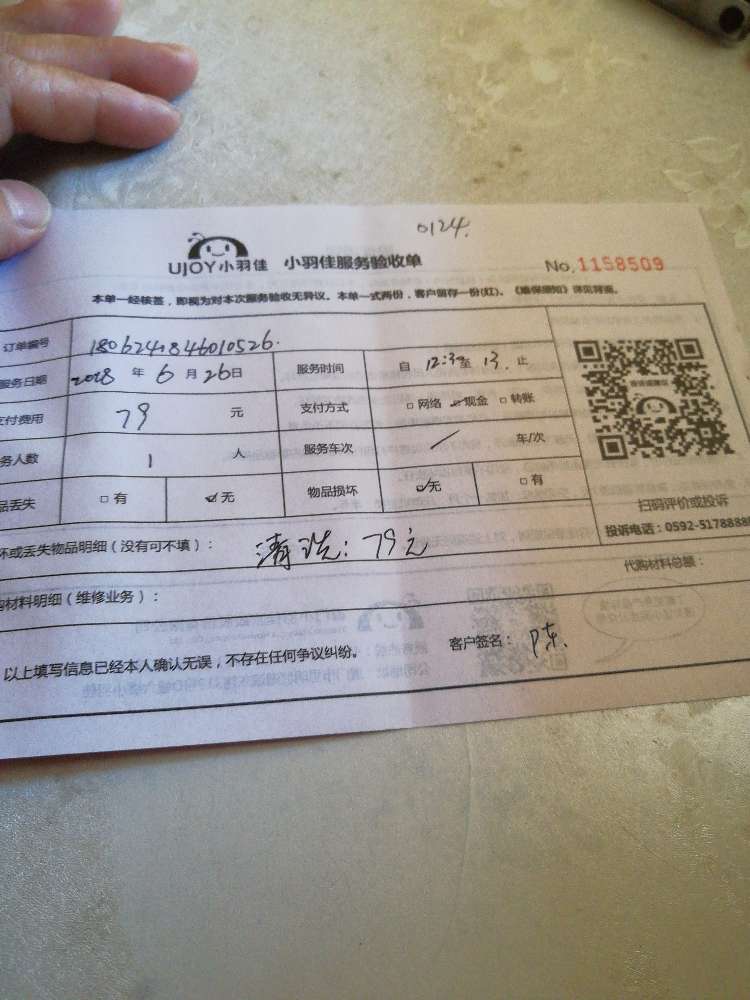 0124.
UJOY小羽佳 小羽佳服务验收单 No.1158509
本单一经核签，即视为对本次服务验收无异议。本单一式两份，客户留存一份(红)。《维保须知》详见背面。
订单编号 1806241846010526.
服务日期 2018 年 6 月 26日 服务时间 自 12:30 至 13. 止
支付费用 79 元 支付方式 □网络 ☑现金 □转账
务人数 1 人 服务车次 / 车/次
品丢失 □有 ☑无 物品损坏 ☑无 □有
扫码评价或投诉
投诉电话：0592-5178888
坏或丢失物品明细（没有可不填）： 清洗：79元
购材料明细（维修业务）： 代购材料总额：
以上填写信息已经本人确认无误，不存在任何争议纠纷。 客户签名： 陈.